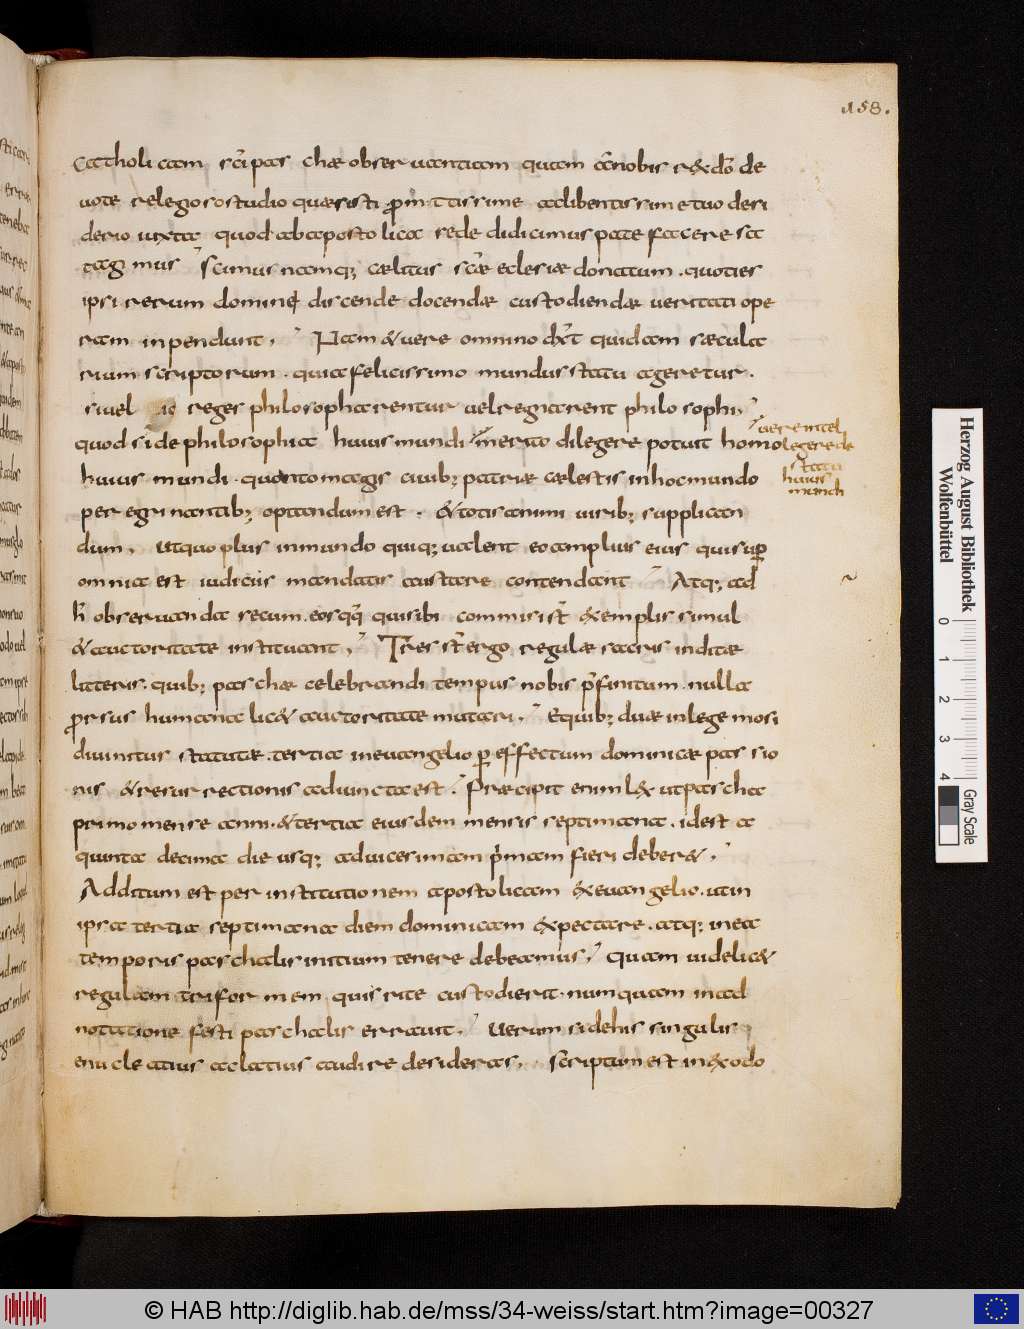 158.
catholicam sc̄i pas chae observantiam quam a nobis rex dō de
vote relegioso studio quaesisti prom̄ttissime ac libentissime tuo desi
derio iuxta quod ab apostolica sede didicimus pate facere sa
tag mus Scimus namq; caelitus scāe eclesiae donatum . quoties
ipsi rerum domine discende docendae custodiendae veritati ope
ram inpendunt, Nam & vere omnino dx̄t quidam saecula
rium scriptorum . quia felicissimo mundus statu ageretur .
si vel reges philosopharentur vel regnarent philosophi,
quod si de philosophia huius mundi merito dilegere potuit homo
vere intel
legere de
statu
huius
mundi
huius mundi . quanto magis civib; patriae caelestis in hoc mundo
peregrinantib; optandum est . & totis animi virib; supplican
dum, ut quo plus in mundo quiq; valent eo amplius eius qui sup̄
omnia est iudicis mandatis auscultare contendant Atq; ad
h̄ observanda secum eosq̄q; qui sibi commisi st̄ exemplis simul
& auctoritate instituant, Tres st̄ ergo regulae sacris inditae
litteris . quib; paschae celebrandi tempus nobis p̄finitum . nulla
prorsus humana lic& auctoritate mutari, E quib; duae in lege mosi
divinitus statutae . tertia in evangelio p̄ effectum dominicae passio
nis & resurrectionis adiuncta est . Praecipit enim lex ut pascha
primo mense anni . & tertia eiusdem mensis septimana . id est a
quinta decima die usq; ad vicesimam p̄mam fieri deber&,
Additum est per institutionem apostolicam ex evangelio . ut in
ipsa tertia septimana diem dominicam expectare . atq; in ea
temporis paschalis initium tenere debeamus, Quam videlic&
regulam triformem quis rite custodierit . numquam in ad
notatione festi paschalis erravit, Verum si de his singulis
enucleatius ac latius audire desideras, scriptum est in exodo
Herzog August Bibliothek
Wolfenbüttel
0 1 2 3 4
Gray Scale
© HAB http://diglib.hab.de/mss/34-weiss/start.htm?image=00327